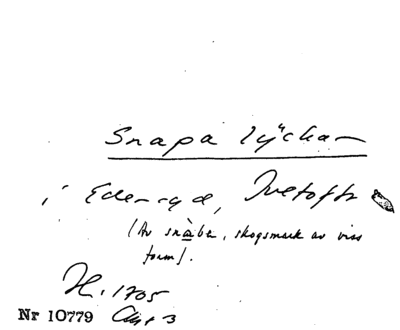 Snapa lyckan
i Edenryd, Ivetofta
(Av snàber, skogsmark av viss
form).
H. 1705
Nr 10779